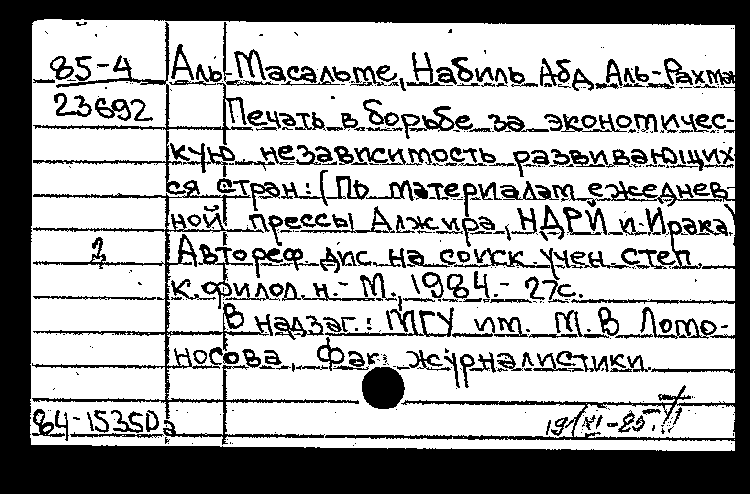 85-4 Аль-Масальме, Набиль Абд Аль-Рахма
23692 Печать в борьбе за экономичес-
кую независимость развивающих
ся стран: (По материалам ежеднев
ной прессы Алжира, НДРЙ и Ирака)
2 Автореф дис. на соиск учен степ.
к. филол. н. - М., 1984. - 27с.
В надзаг.: МГУ им. М. В Ломо-
носова, Фак. журналистики.
84-15350а 19/XI-85.